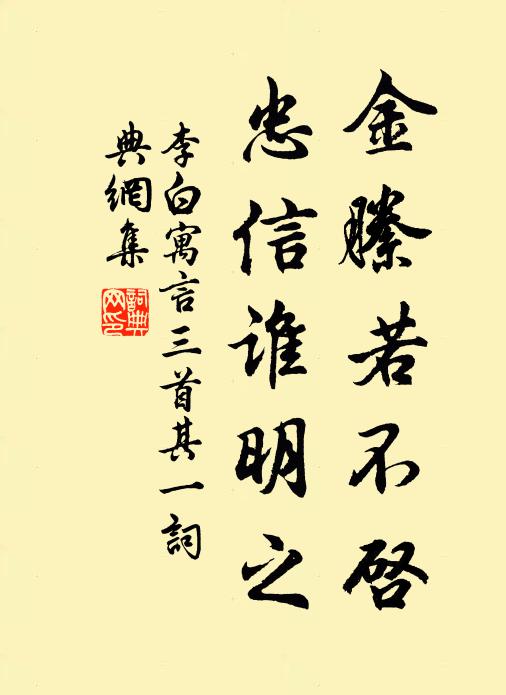 金縢若不啓
忠信谁明之
李白寓言三首其一詞
典網集
詞典
网印